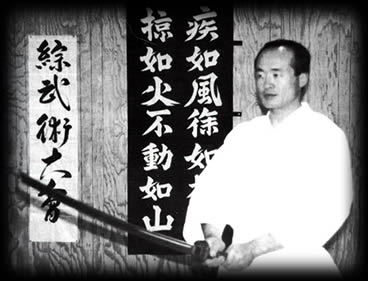 疾如風徐如
掠如火不動如山
綜武術大會